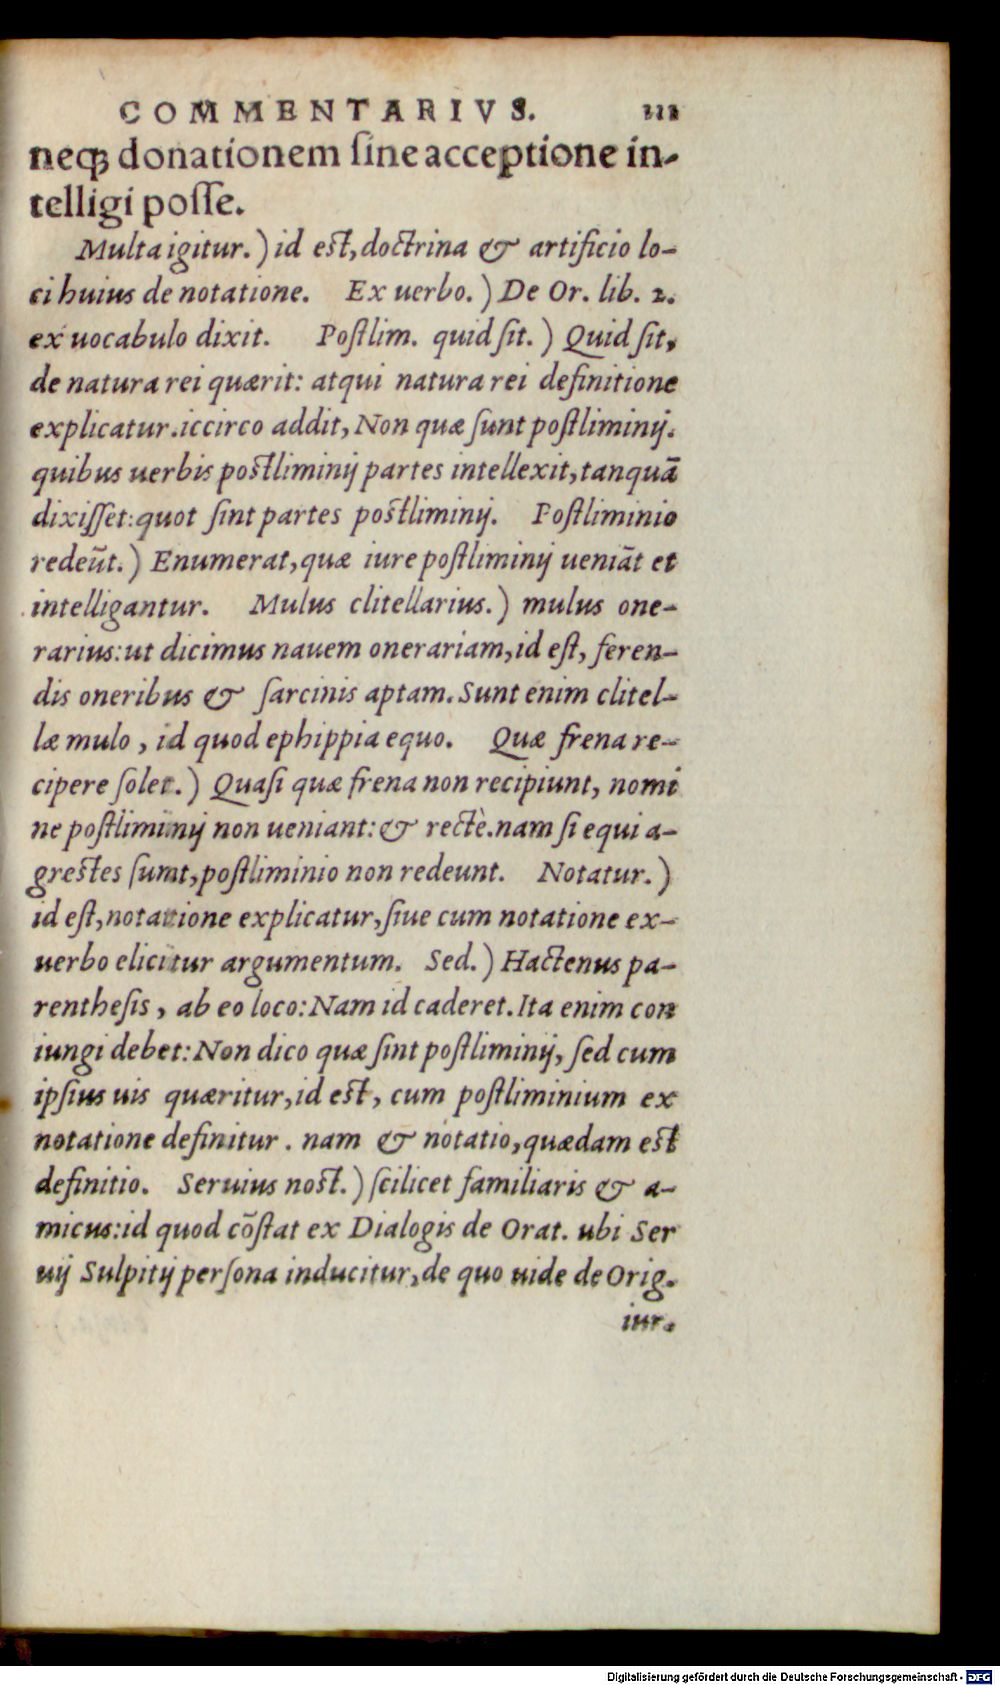 COMMENTARIVS. 111
neq donationem ſine acceptione in-
telligi poſſe.
Multa igitur.) id eſt, doctrina & artificio lo-
ci huius de notatione. Ex uerbo.) De Or. lib. 2.
ex uocabulo dixit. Poſtlim. quid ſit.) Quid ſit,
de natura rei quærit: atqui natura rei definitione
explicatur. iccirco addit, Non quæ ſunt poſtliminij.
quibus uerbis poſtliminij partes intellexit, tanquā
dixiſſet: quot ſint partes poſtliminij. Poſtliminio
redeūt.) Enumerat, quæ iure poſtliminij ueniāt et
intelligantur. Mulus clitellarius.) mulus one-
rarius: ut dicimus nauem onerariam, id eſt, feren-
dis oneribus & ſarcinis aptam. Sunt enim clitel-
læ mulo, id quod ephippia equo. Quæ frena re-
cipere ſolet.) Quaſi quæ frena non recipiunt, nomi
ne poſtliminij non ueniant: & rectè. nam ſi equi a-
greſtes ſunt, poſtliminio non redeunt. Notatur.)
id eſt, notatione explicatur, ſiue cum notatione ex-
uerbo elicitur argumentum. Sed.) Hactenus pa-
rentheſis, ab eo loco: Nam id caderet. Ita enim con
iungi debet: Non dico quæ ſint poſtliminij, ſed cum
ipſius uis quæritur, id eſt, cum poſtliminium ex
notatione definitur. nam & notatio, quædam eſt
definitio. Seruius noſt.) ſcilicet familiaris & a-
micus: id quod cōſtat ex Dialogis de Orat. ubi Ser
uij Sulpitij perſona inducitur, de quo uide de Orig.
iur.
Digitalisierung gefördert durch die Deutsche Forschungsgemeinschaft - DFG